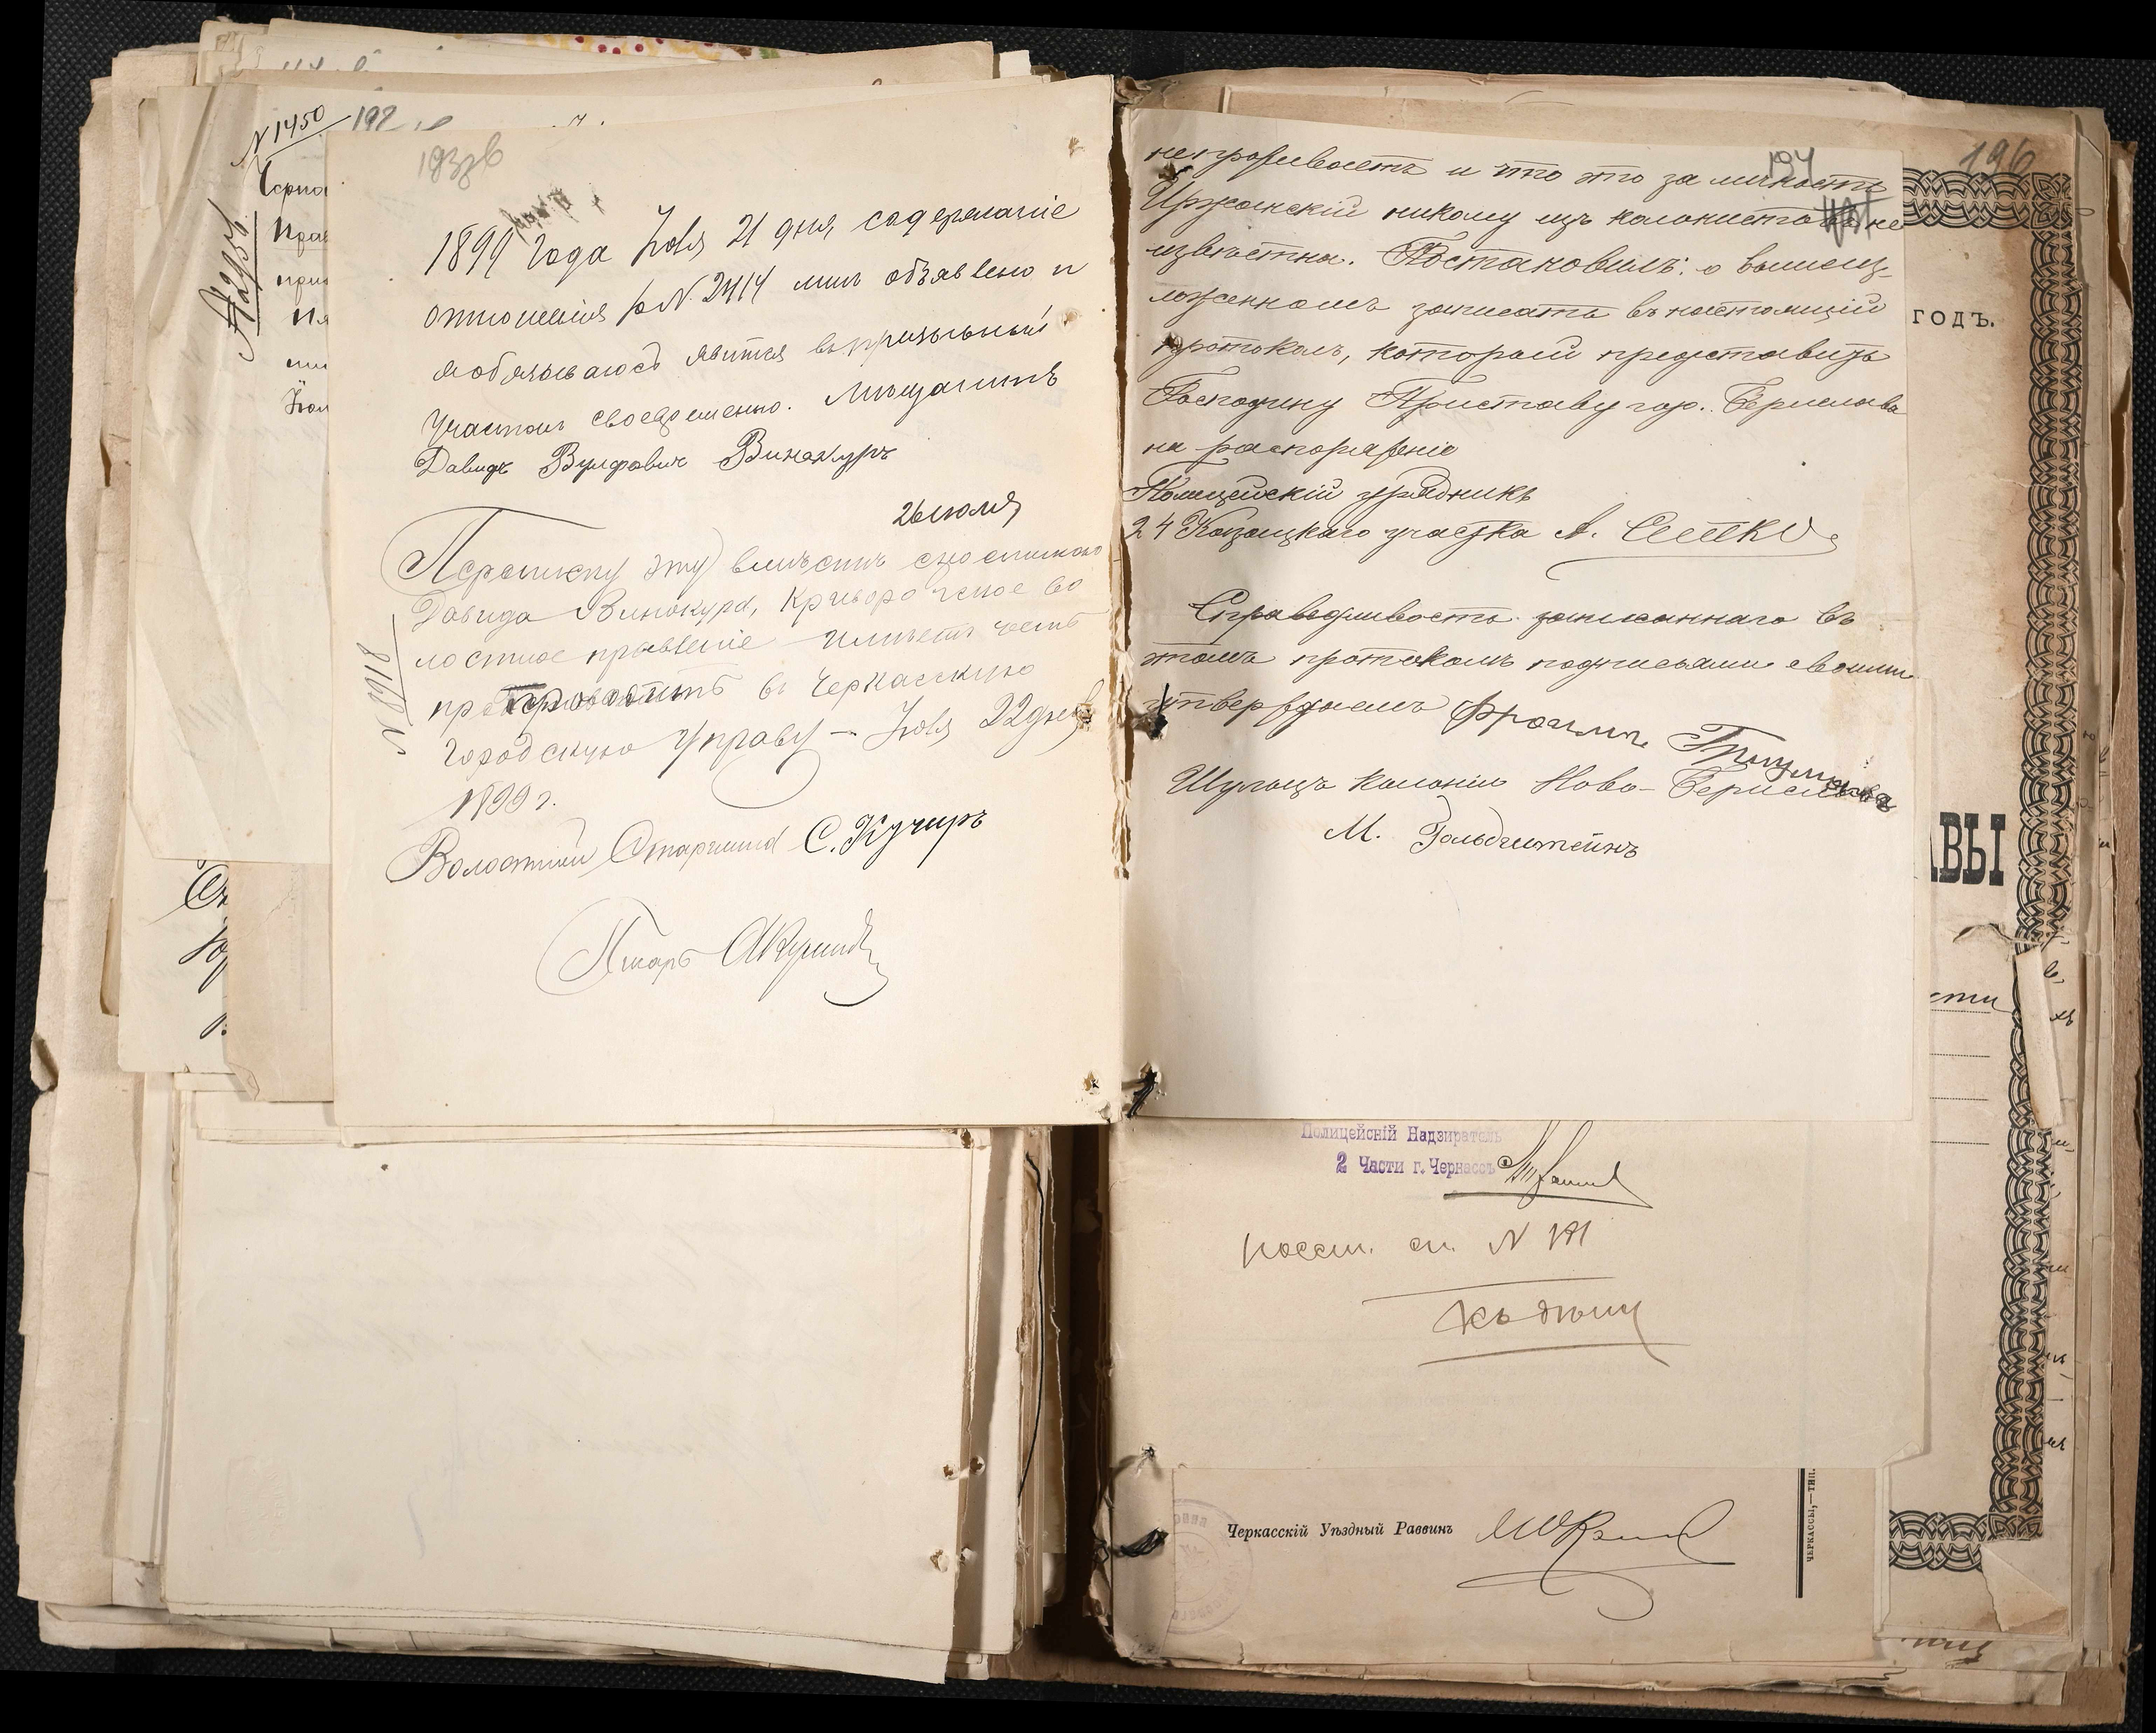 N 1450
192
193об
1899 года Іюля 21 дня, содержаніе
отношенія за N. 2414 мнѣ объявлено и
я обязываюсь явится въ призывный
участокъ своевременно. Мѣщанинъ
Давидъ Вулфовичъ Винокуръ
26 июля
Переписку эту вмѣстѣ съ
Давида Винокура, Криворожское во
лостное правленіе имѣетъ честь
въ Черкасскую
Городскую Управу – Іюля 22 дня
1899 г.
N 8918
Волостной Старшина С. Кучиръ
Писарь
194
непроживаетъ и что это за личность
Иржанскій никому изъ колонистовъ не
извѣстна. Постановилъ: о вышеиз-
ложенномъ записать въ настоящій
протоколъ, который представить
Господину Приставу гор. Берислава
на распоряженіе
Полицейскій урядникъ
24 Козацкаго участка А.
Справедливость записаннаго въ
этомъ протоколѣ подписями своими
утверждаемъ Фроимъ
Шульцъ колоніи Ново-Бериславъ
М. Гольдштейнъ
196
ГОДЪ.
АВЫ
Полицейскій Надзиратель
2 Части г. Черкассъ
N 171
Къ дѣлу
Черкасскій Уѣздный Раввинъ
ЧЕРКАССЫ,—ТИП.